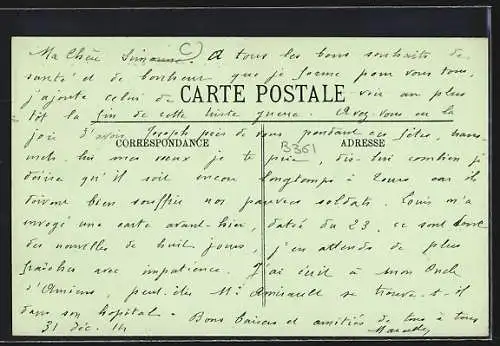 Ma Chère Simonne. A tous les bons souhaits de
santé et de bonheur que je forme pour vous tous,
j'ajoute celui de voir au plus
CARTE POSTALE
tôt la fin de cette triste guerre. Avez-vous eu la
joie d'avoir Joseph près de vous pendant ces fêtes,
CORRESPONDANCE
ADRESSE
B361
C
mets-lui mes vœux je te prie, dis-lui combien je
désire qu'il soit encore longtemps à ils
doivent bien souffrir nos pauvres soldats. Louis m'a
envoyé une carte avant-hier, datée du 23, ce sont donc
des nouvelles de huit jours, j'en attends de plus
fraîches avec impatience. J'ai écrit à mon Oncle
d'Amiens, peut-être Mr se trouve-t-il
dans son hôpital. Bons baisers et amitiés de tous à tous
31 déc. 14